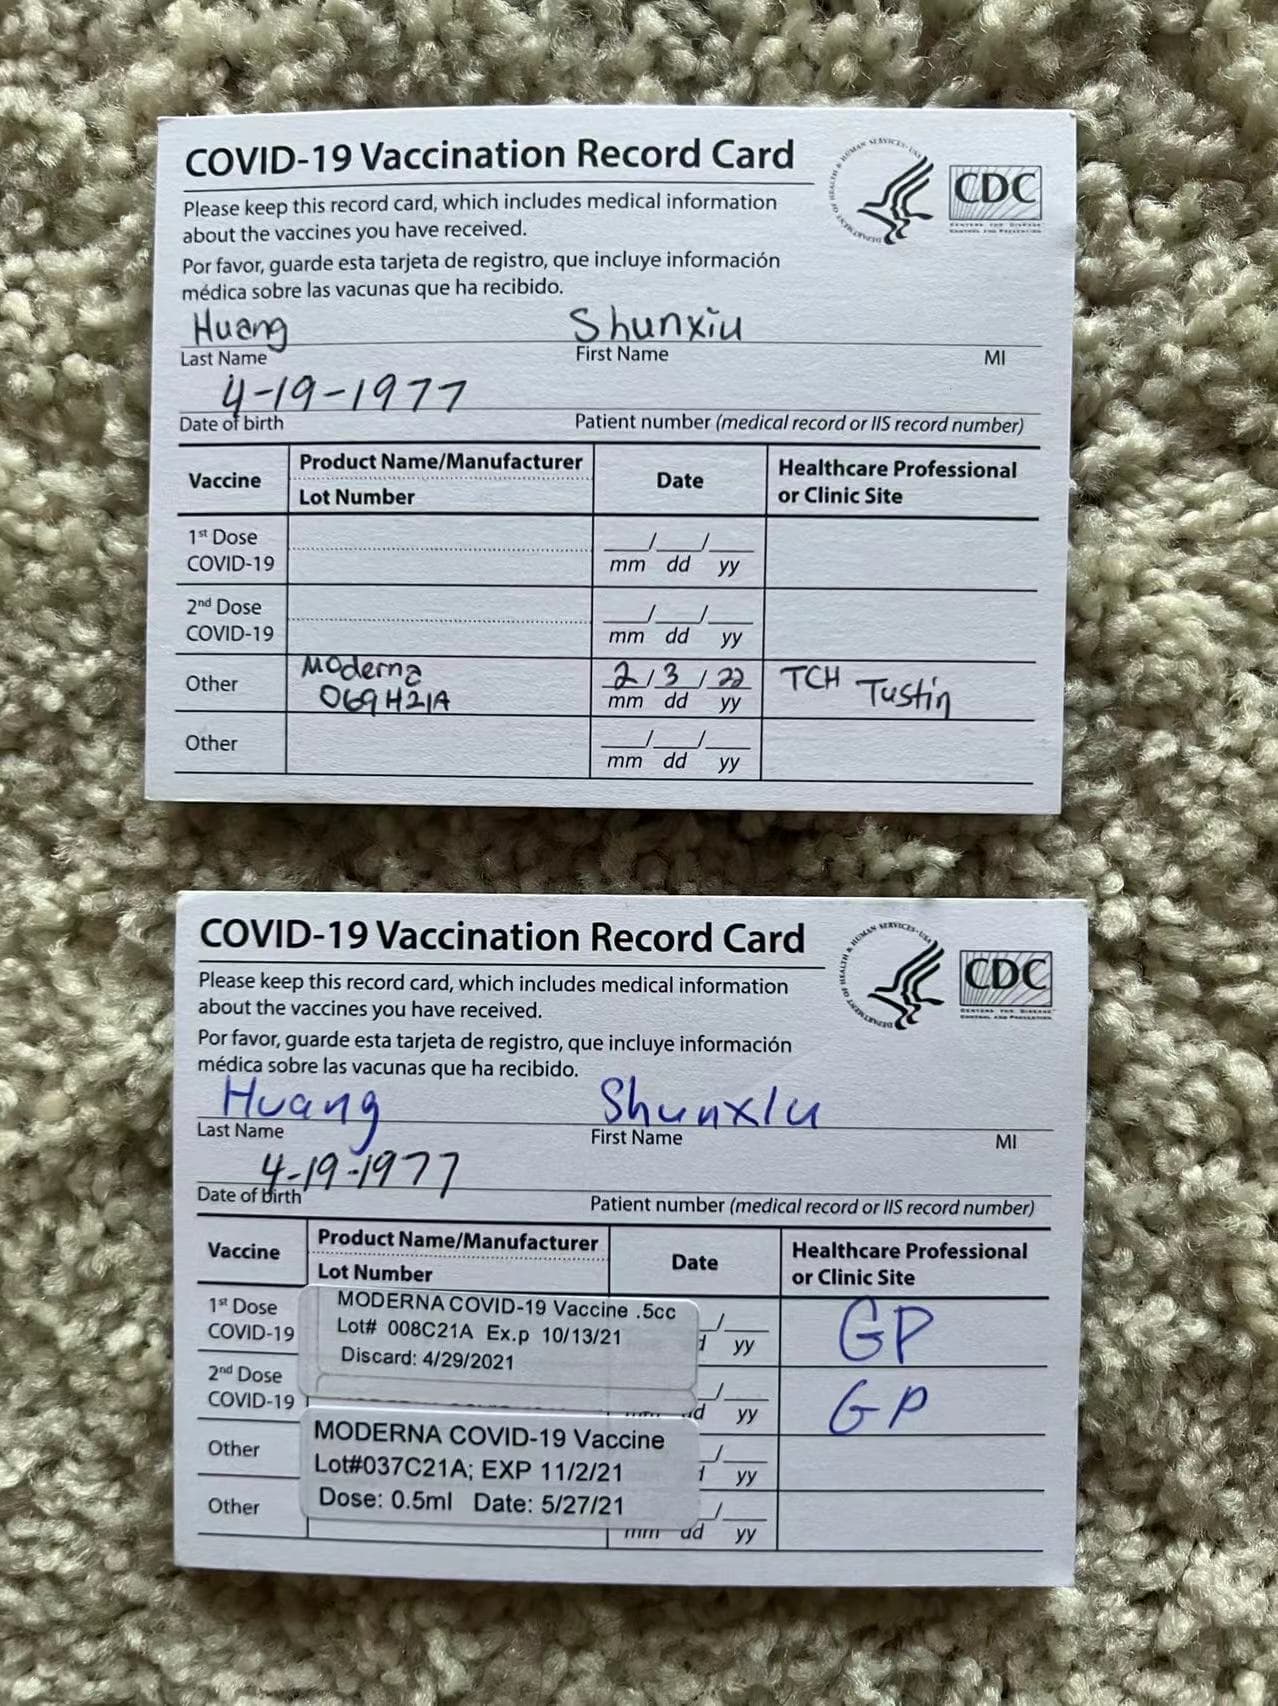 COVID-19 Vaccination Record Card
DEPARTMENT OF HEALTH & HUMAN SERVICES · USA
CDC
CENTERS FOR DISEASE
CONTROL AND PREVENTION
Please keep this record card, which includes medical information
about the vaccines you have received.
Por favor, guarde esta tarjeta de registro, que incluye información
médica sobre las vacunas que ha recibido.
Huang Shunxiu
Last Name First Name MI
4-19-1977
Date of birth Patient number (medical record or IIS record number)
Vaccine Product Name/Manufacturer Date Healthcare Professional
Lot Number or Clinic Site
1st Dose
COVID-19 mm dd yy
2nd Dose
COVID-19 mm dd yy
Other Moderna 2/3/22 TCH Tustin
069H21A mm dd yy
Other mm dd yy
COVID-19 Vaccination Record Card
DEPARTMENT OF HEALTH & HUMAN SERVICES · USA
CDC
CENTERS FOR DISEASE
CONTROL AND PREVENTION
Please keep this record card, which includes medical information
about the vaccines you have received.
Por favor, guarde esta tarjeta de registro, que incluye información
médica sobre las vacunas que ha recibido.
Huang Shunxiu
Last Name First Name MI
4-19-1977
Date of birth Patient number (medical record or IIS record number)
Vaccine Product Name/Manufacturer Date Healthcare Professional
Lot Number or Clinic Site
1st Dose MODERNA COVID-19 Vaccine .5cc GP
COVID-19 Lot# 008C21A Ex.p 10/13/21 yy
Discard: 4/29/2021
2nd Dose GP
COVID-19 yy
Other MODERNA COVID-19 Vaccine
Lot#037C21A; EXP 11/2/21 yy
Other Dose: 0.5ml Date: 5/27/21
mm dd yy